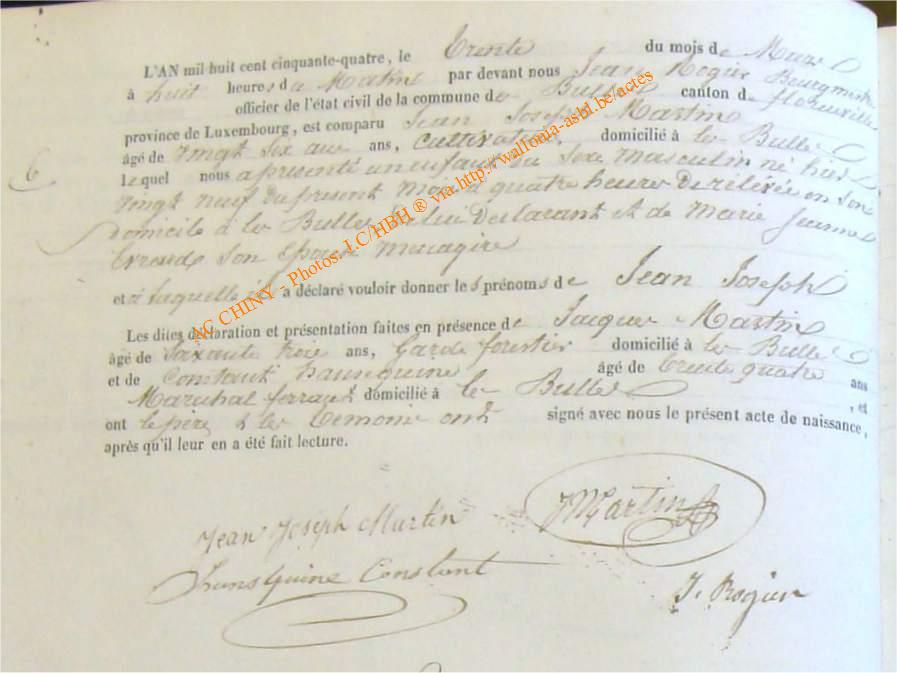 L'AN mil huit cent cinquante-quatre, le Trente du mois de Mars
à huit heures du Matin par devant nous Jean Rogier Bourgmestre
officier de l'état civil de la commune de Les Bulles canton de florenville
province de Luxembourg, est comparu Jean Joseph Martin
âgé de vingt Six ans, Cultivateur, domicilié à les Bulles
lequel nous a présenté un enfant du Sexe masculin né hier
6
vingt neuf du présent mois à quatre heures de rélévée en Son
domicile à les Bulles de lui Declarant et de Marie Jeanne
Son Epouse menagère
et à laquelle il a déclaré vouloir donner les prénoms de Jean Joseph
Les dites déclaration et présentation faites en présence de Jacques Martin
âgé de Soixante trois ans, Garde forestier domicilié à les Bulles
et de Constant hansquine âgé de trente quatre ans
Maréchal ferrant domicilié à les Bulles, et
ont le père & les temoins ont signé avec nous le présent acte de naissance,
après qu'il leur en a été fait lecture.
AC CHINY - Photos. J.C/HBH ® via http://wallonia-asbl.be/actes
JMartin
Jean Joseph Martin
hansquine Constant
J. Rogier